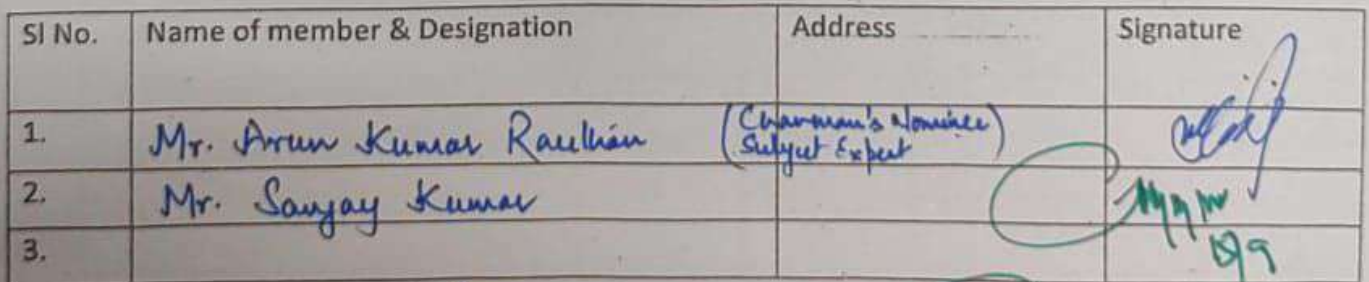 Sl No. Name of member & Designation Address Signature
1. Mr. Arun Kumar (Chairman's Nominee)
Subject Expert
2. Mr. Sanjay Kumar
3.